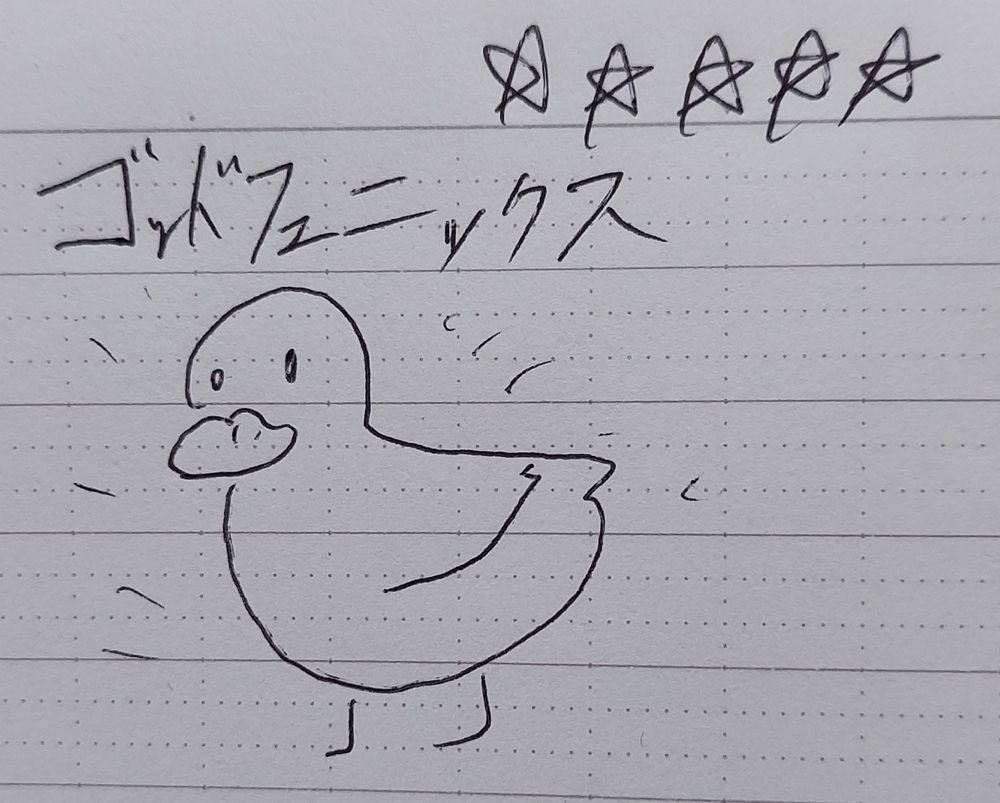 ☆☆☆☆☆
ゴッドフェニックス